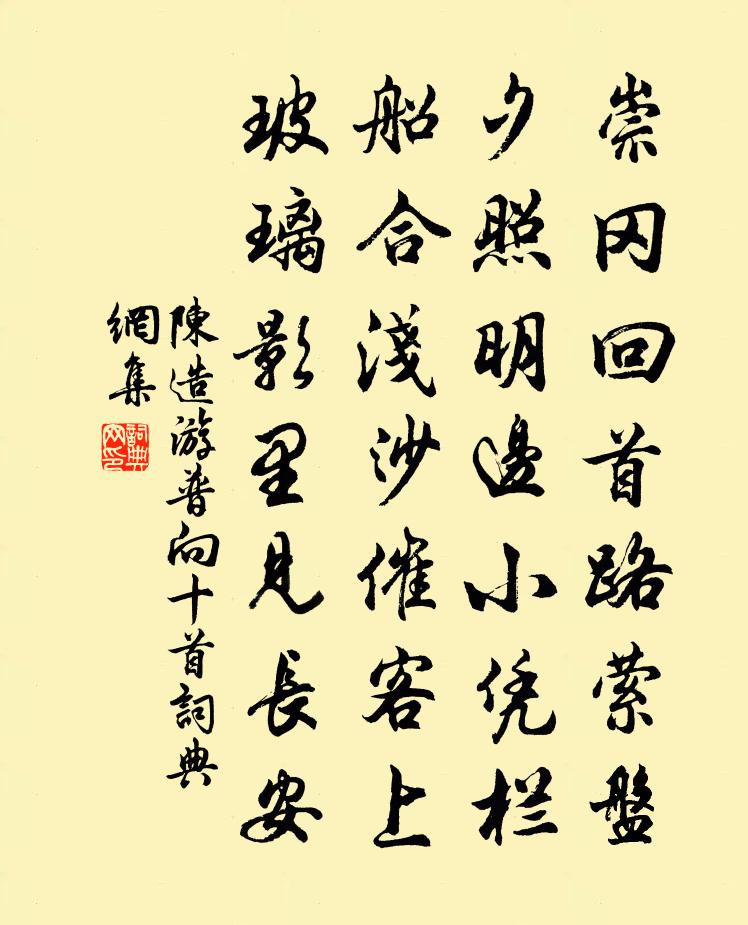 崇冈回首路萦盘
夕照明邊小凭栏
船合淺沙催客上
玻璃影里見長安
陳造游普向十首詞典
網集
詞典
网印